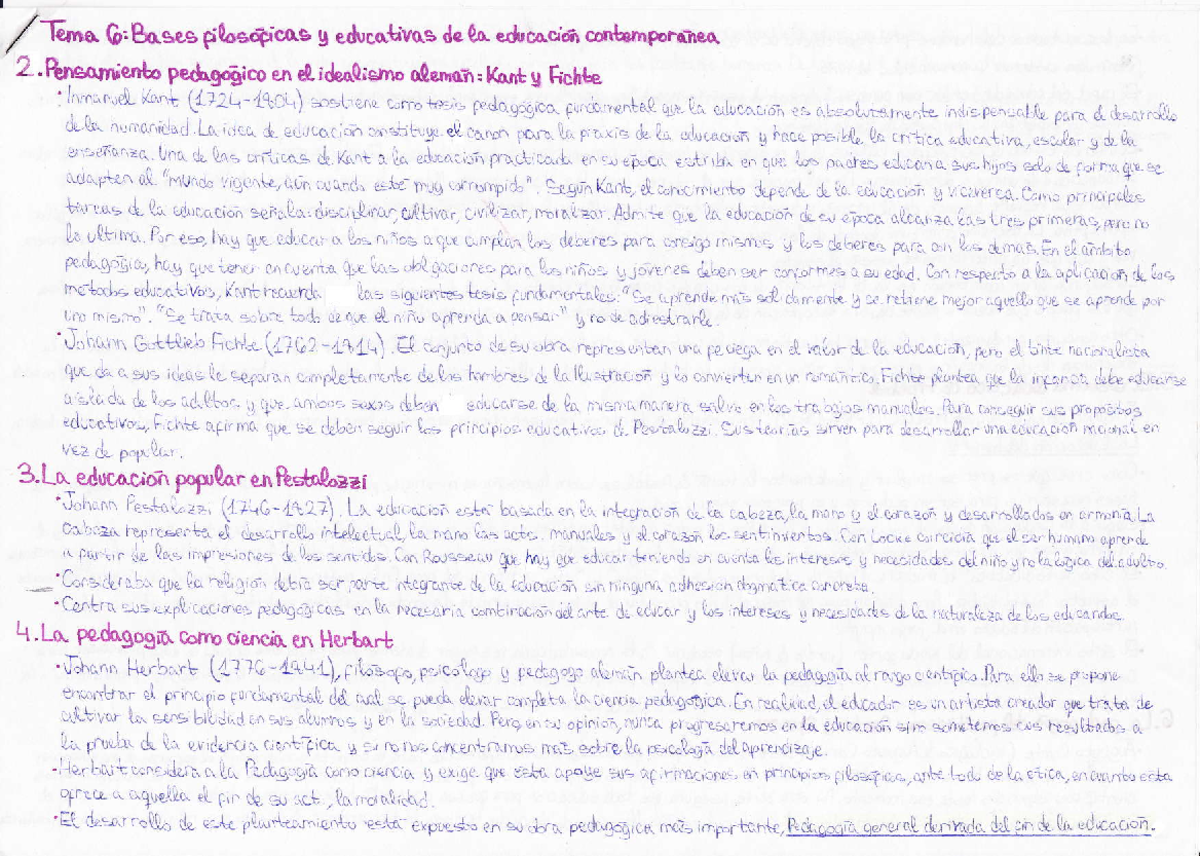 Tema 6: Bases filosóficas y educativas de la educación contemporánea
2. Pensamiento pedagógico en el idealismo alemán: Kant y Fichte
· Inmanuel Kant (1724-1804) sostiene como tesis pedagógica fundamental que la educación es absolutamente indispensable para el desarrollo
de la humanidad. La idea de educación constituye el canon para la praxis de la educación y hace posible la crítica educativa, escolar y de la
enseñanza. Una de las críticas de Kant a la educación practicada en su época estriba en que los padres educan a sus hijos solo de forma que se
adapten al "mundo vigente, aún cuando esté muy corrompido". Según Kant, el conocimiento depende de la educación y viceversa. Como principales
tareas de la educación señala: disciplinar, cultivar, civilizar, moralizar. Admite que la educación de su época alcanza las tres primeras, pero no
la última. Por eso, hay que educar a los niños a que cumplan los deberes para consigo mismos y los deberes para con los demás. En el ámbito
pedagógico, hay que tener en cuenta que las obligaciones para los niños y jóvenes deben ser conformes a su edad. Con respecto a la aplicación de los
métodos educativos, Kant recuerda las siguientes tesis fundamentales: "Se aprende más solidamente y se retiene mejor aquello que se aprende por
uno mismo". "Se trata sobre todo de que el niño aprenda a pensar" y no de adiestrarle.
· Johann Gottlieb Fichte (1762-1814). El conjunto de su obra representan una fe ciega en el valor de la educación, pero el tinte nacionalista
que da a sus ideas le separan completamente de los hombres de la Ilustración y lo convierten en un romántico. Fichte plantea que la infancia debe educarse
aislada de los adultos y que ambos sexos deben educarse de la misma manera salvo en los trabajos manuales. Para conseguir sus propósitos
educativos, Fichte afirma que se deben seguir los principios educativos d Pestalozzi. Sus teorías sirven para desarrollar una educación nacional en
vez de popular.
3. La educación popular en Pestalozzi
· Johann Pestalozzi (1746-1827). La educación está basada en la integración de la cabeza, la mano y el corazón y desarrollados en armonía. La
cabeza representa el desarrollo intelectual, la mano las acts. manuales y el corazón los sentimientos. Con Locke coincidía que el ser humano aprende
a partir de las impresiones de los sentidos. Con Rousseau que hay que educar teniendo en cuenta los intereses y necesidades del niño y no la lógica del adulto.
· Consideraba que la religión debía ser parte integrante de la educación sin ninguna adhesión dogmática concreta.
· Centra sus explicaciones pedagógicas en la necesaria combinación del arte de educar y los intereses y necesidades de la naturaleza de los educandos.
4. La pedagogía como ciencia en Herbart
· Johann Herbart (1776-1841), filósofo, psicólogo y pedagogo alemán plantea elevar la pedagogía al rango científico. Para ello se propone
encontrar el principio fundamental del cual se pueda elevar completa la ciencia pedagógica. En realidad, el educador es un artista creador que trata de
cultivar la sensibilidad en sus alumnos y en la sociedad. Pero, en su opinión, nunca progresaremos en la educación sino sometemos sus resultados a
la prueba de la evidencia científica y si no nos concentramos más sobre la psicología del aprendizaje.
· Herbart considera a la Pedagogía como ciencia y exige que ésta apoye sus afirmaciones en principios filosóficos, ante todo de la ética, en cuanto esta
ofrece a aquella el fin de su act., la moralidad.
· El desarrollo de este planteamiento está expuesto en su obra pedagógica más importante, Pedagogía general derivada del fin de la educación.